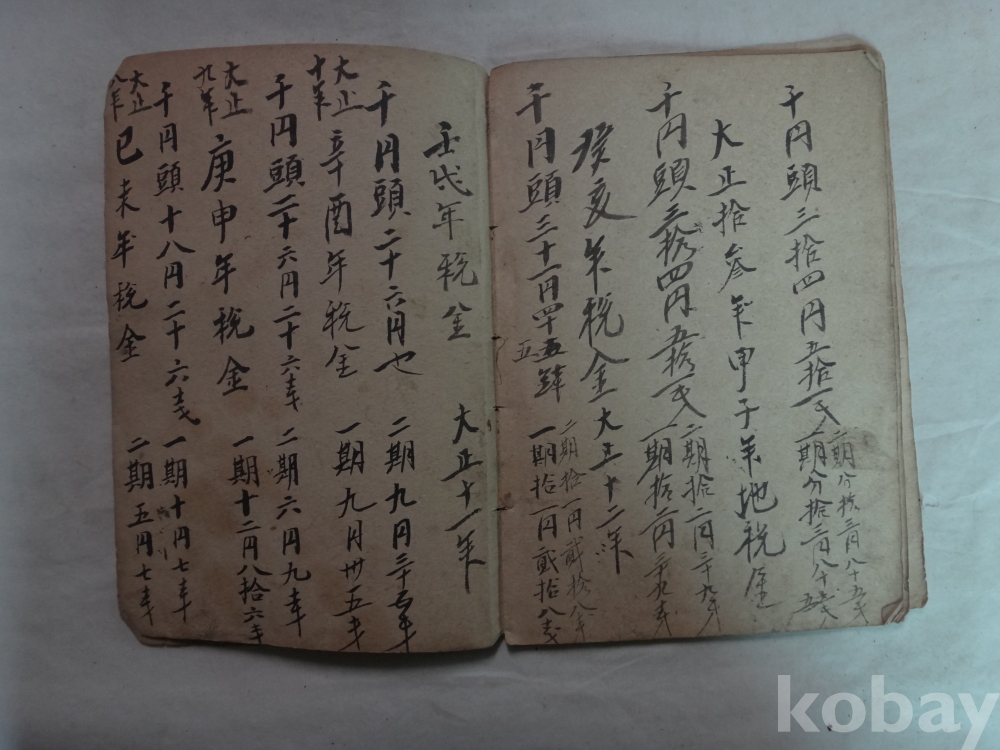 千円頭三拾四円五拾一戋
二期分拾三円八十五戋
一期分拾三円八十五戋
大正拾參年甲子年地税金
千円頭三拾四円五拾一戋
二期拾二円三十九戋
一期拾二円三十九戋
癸亥年税金 大正十二年
千円頭三十一円四十五
二期拾一円貳拾八戋
一期拾一円貳拾八戋
壬戌年税金 大正十一年
千円頭二十六円也 二期九円三十五戋
大正十年
辛酉年税金 一期九円卅五戋
千円頭二十六円二十六戋 二期六円九戋
大正九年
庚申年税金 一期十二円八拾六戋
千円頭十八円二十六戋 一期十円七戋
大正八年
己未年税金 二期五円七戋
kobay